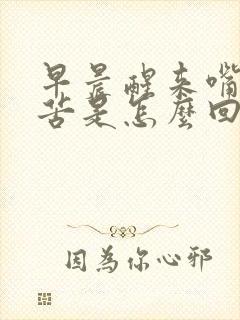 早晨醒来嘴
苦是怎麼回
因為你心邪